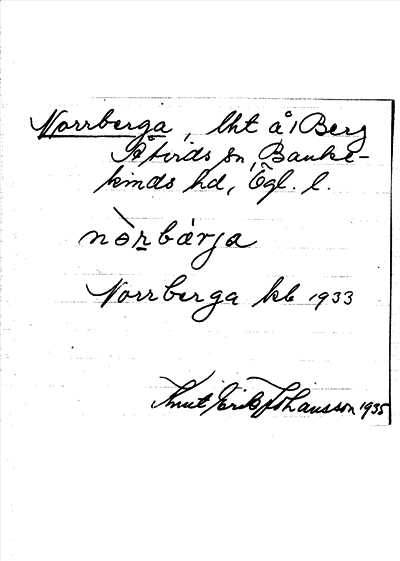 Norrberga, lht å 1 Berg
Åtvids sn, Banke-
kinds hd, Ögl. l.
nòrbárja
Norrberga kb 1933
Knut Erik Johansson 1935